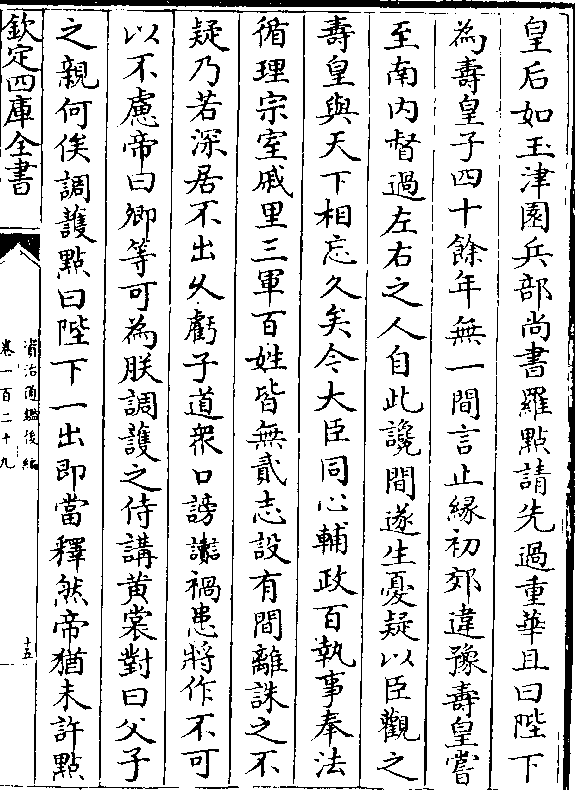 皇后如玉津園兵部尚書羅點請先過重華且曰陛下
為壽皇子四十餘年無一間言止緣初郊違豫壽皇嘗
至南内督過左右之人自此讒間遂生憂疑以臣觀之
壽皇與天下相忘久矣今大臣同心輔政百執事奉法
循理宗室戚里三軍百姓皆無貳志設有間離誅之不
疑乃若深居不出久虧子道衆口謗讟禍患將作不可
以不慮帝曰卿等可為朕調護之侍講黄裳對曰父子
之親何俟調護點曰陛下一出即當釋然帝猶未許點
欽定四庫全書
資治通鑑後編
卷一百二十九
十五